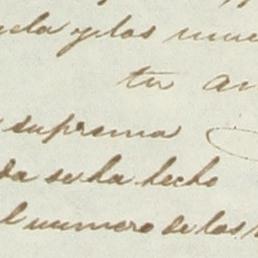 y los
tu
suprema
da se ha hecho
l numero de los